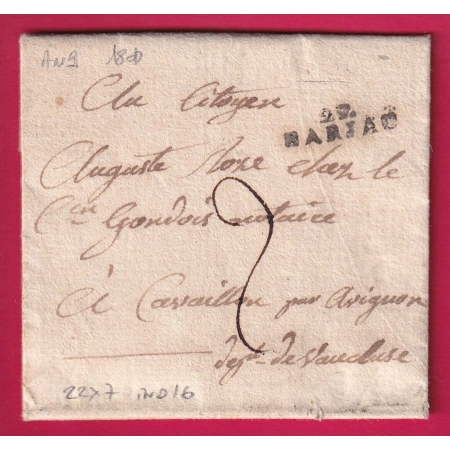 AN9 1801
Au Citoyen
29.
BARJAC
Auguste chez le
Cen Gondois notaire
2
À Cavaillon par Avignon
dept. de Vaucluse
22x7 IND16